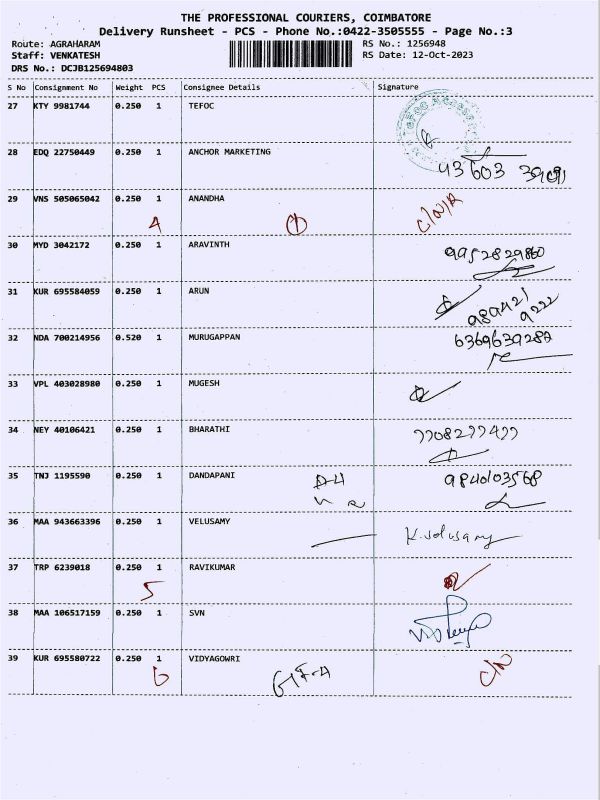 THE PROFESSIONAL COURIERS, COIMBATORE
Delivery Runsheet - PCS - Phone No.:0422-3505555 - Page No.:3
Route: AGRAHARAM RS No.: 1256948
Staff: VENKATESH RS Date: 12-Oct-2023
DRS No.: DCJB125694803
S No Consignment No Weight PCS Consignee Details Signature
27 KTY 9981744 0.250 1 TEFOC
28 EDQ 22750449 0.250 1 ANCHOR MARKETING
93603 39091
29 VNS 505065042 0.250 1 ANANDHA
4 1 C/N/R
30 MYD 3042172 0.250 1 ARAVINTH
9952829860
31 KUR 695584059 0.250 1 ARUN
989421
9222
32 NDA 700214956 0.520 1 MURUGAPPAN 6369639282
33 VPL 403028980 0.250 1 MUGESH
34 NEY 40106421 0.250 1 BHARATHI 7708277477
35 TNJ 1195590 0.250 1 DANDAPANI 9840103568
36 MAA 943663396 0.250 1 VELUSAMY
K. velusamy
37 TRP 6239018 0.250 1 RAVIKUMAR
5
38 MAA 106517159 0.250 1 SVN
39 KUR 695580722 0.250 1 VIDYAGOWRI
6 C/N